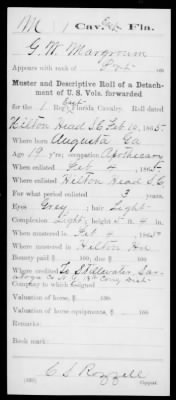 M | 1 | Cav. | Fla.
G. W. Margroum
Appears with rank of Pvt on
Muster and Descriptive Roll of a Detachment
of U. S. Vols. forwarded
for the 1 Reg't Florida Cavalry. Roll dated
Hilton Head S.C. Feb 10, 1865.
Where born Augusta Ga
Age 19 y'rs; occupation Apothecary
When enlisted Feb 4, 1865.
Where enlisted Hilton Head S.C.
For what period enlisted 3 years.
Eyes Grey; hair Light
Complexion Light; height 5 ft. 4 in.
When mustered in Feb 4, 1865
Where mustered in Hilton Hd
Bounty paid $ 100; due $ 100
Where credited To Stillwater Saratoga
Co N.Y. Cong Dist
Company to which assigned
Valuation of horse, $ 100
Valuation of horse equipments, $ 100
Remarks:
Book mark:
Copyist.